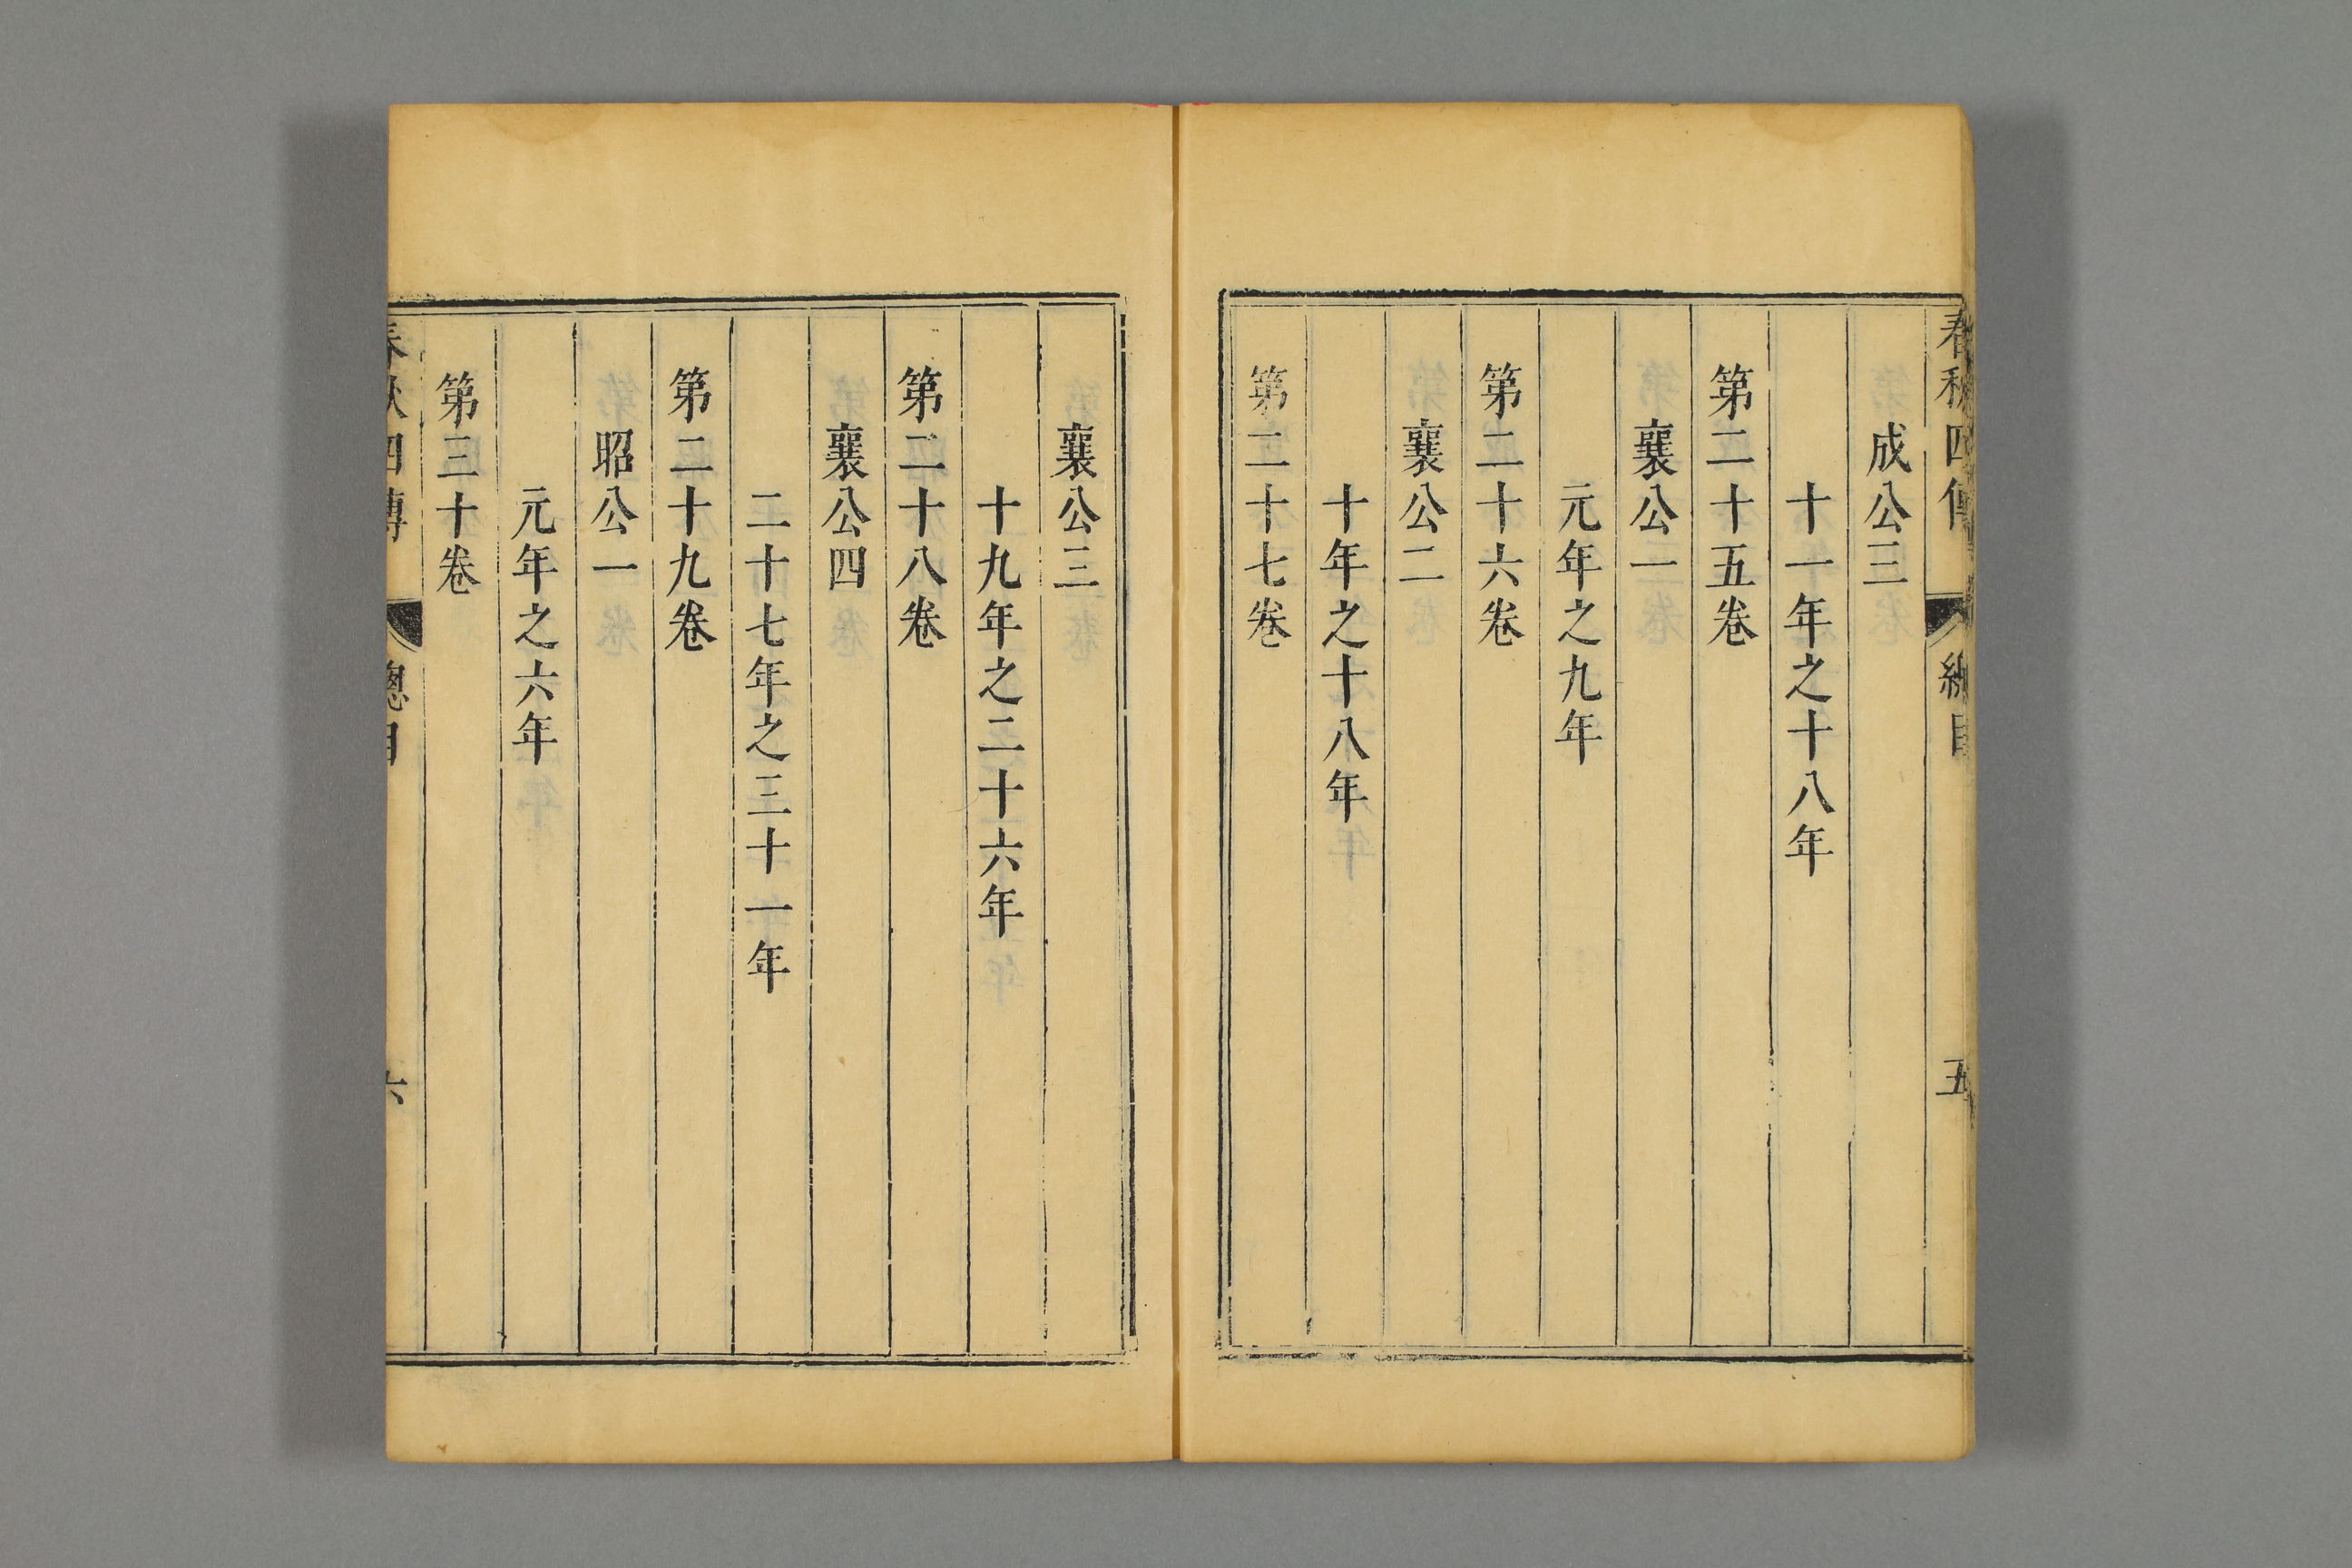 春秋四傳 總目 五
成公三
十一年之十八年
第二十五卷
襄公一
元年之九年
第二十六卷
襄公二
十年之十八年
第二十七卷
襄公三
十九年之二十六年
第二十八卷
襄公四
二十七年之三十一年
第二十九卷
昭公一
元年之六年
第三十卷
春秋四傳 總目 六